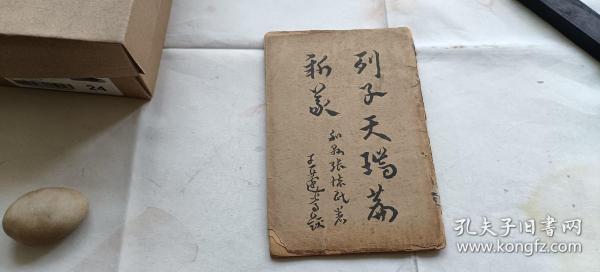 列子天瑞篇
新义
和县张怀民著
24
孔夫子旧书网
www.kongfz.com